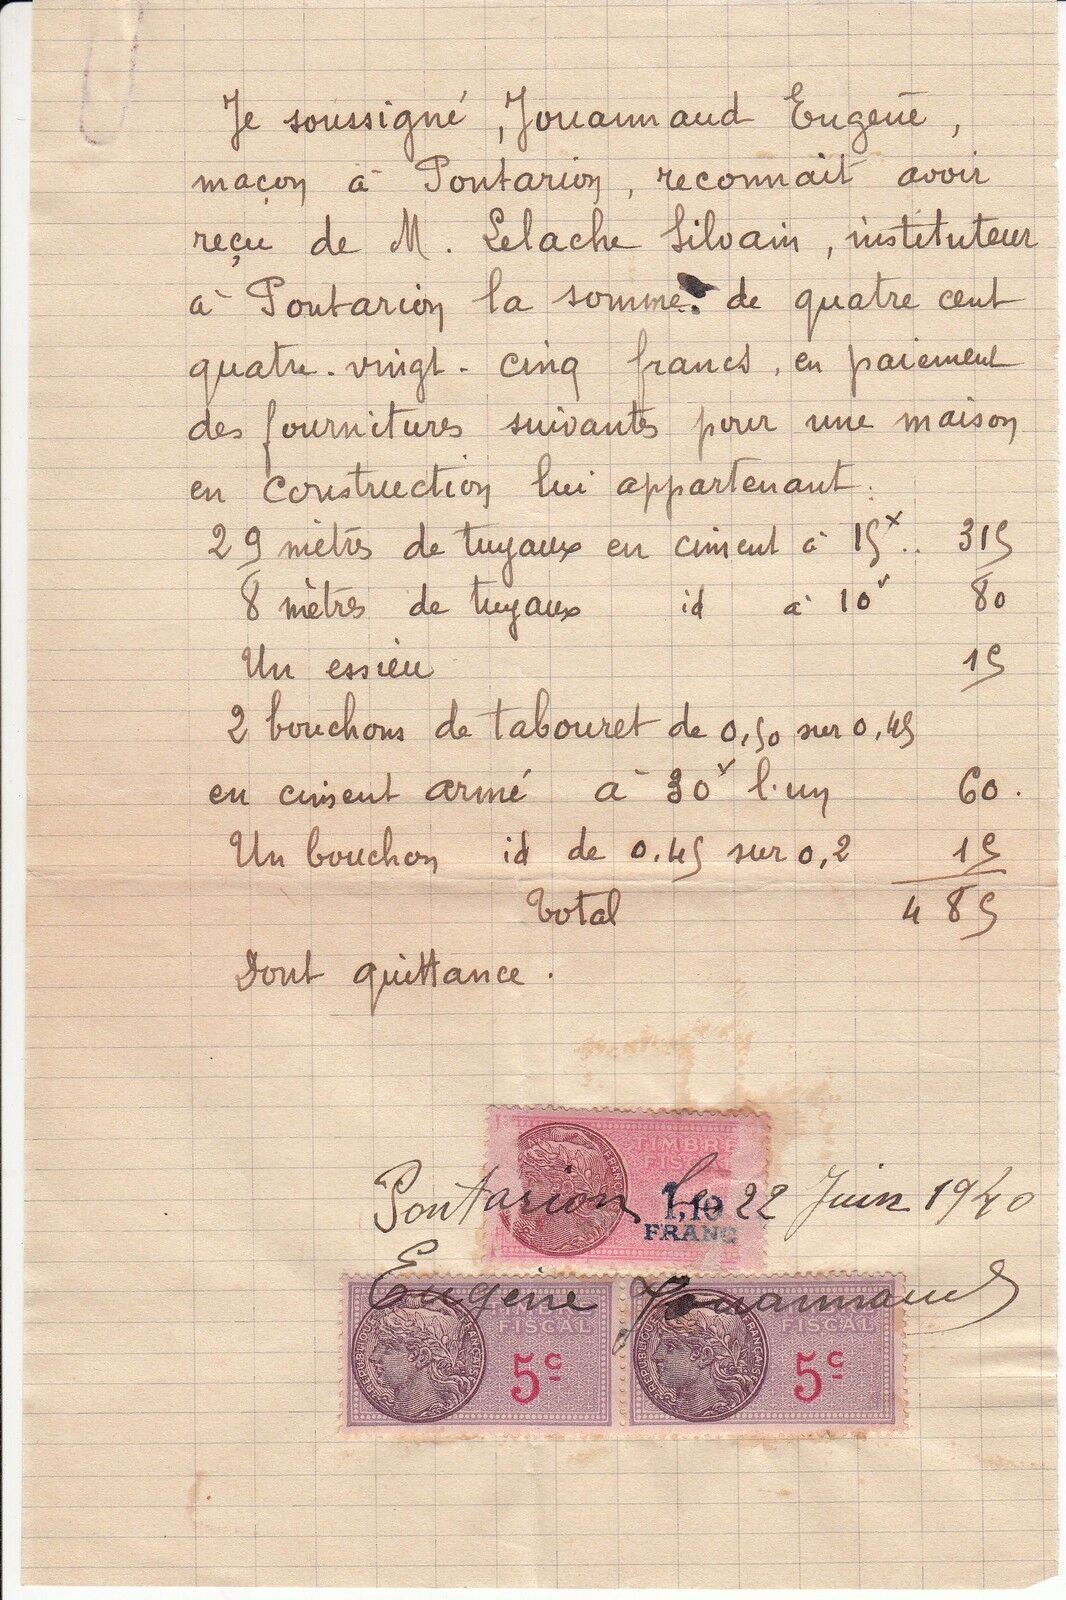 Je soussigné, Jouannaud Eugène,
maçon à Pontarion, reconnait avoir
reçu de M. Lelache Silvain, instituteur
à Pontarion la somme de quatre cent
quatre-vingt-cinq francs, en paiement
des fournitures suivantes pour une maison
en construction lui appartenant:
29 mètres de tuyaux en ciment à 15 .. 315
8 mètres de tuyaux id à 10 80
Un essieu 15
2 bouchons de tabouret de 0,50 sur 0,45
en ciment armé à 30 l'un 60.
Un bouchon id de 0.45 sur 0,2 15
Total 485
Dont quittance.
TIMBRE
FISCAL
Pontarion le 22 Juin 1940
1,10
FRANC
Eugène Jouannaud
TIMBRE FISCAL FISCAL
RÉPUBLIQUE FRANÇAISE RÉPUBLIQUE FRANÇAISE
5c 5c